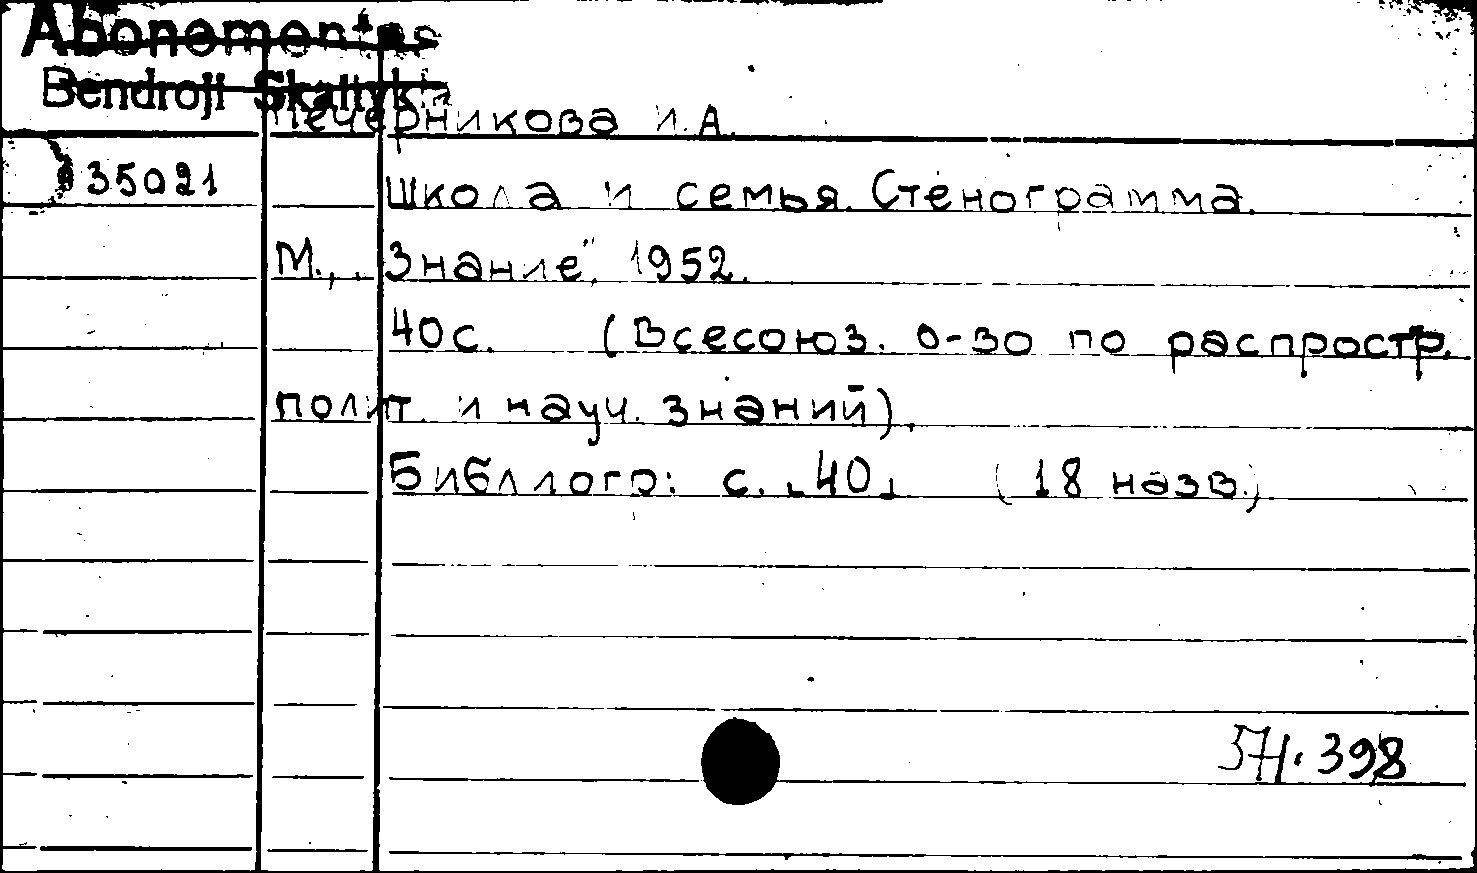 Abonementas
Bendroji Skaitykla
Печерникова И.А.
35021 Школа и семья. Стенограмма.
М., „Знание", 1952.
40с. (Всесоюз. о-зо по распростр.
полит. и науч. знаний).
Библлогр: с. 40 (18 назв.)
37Н.398